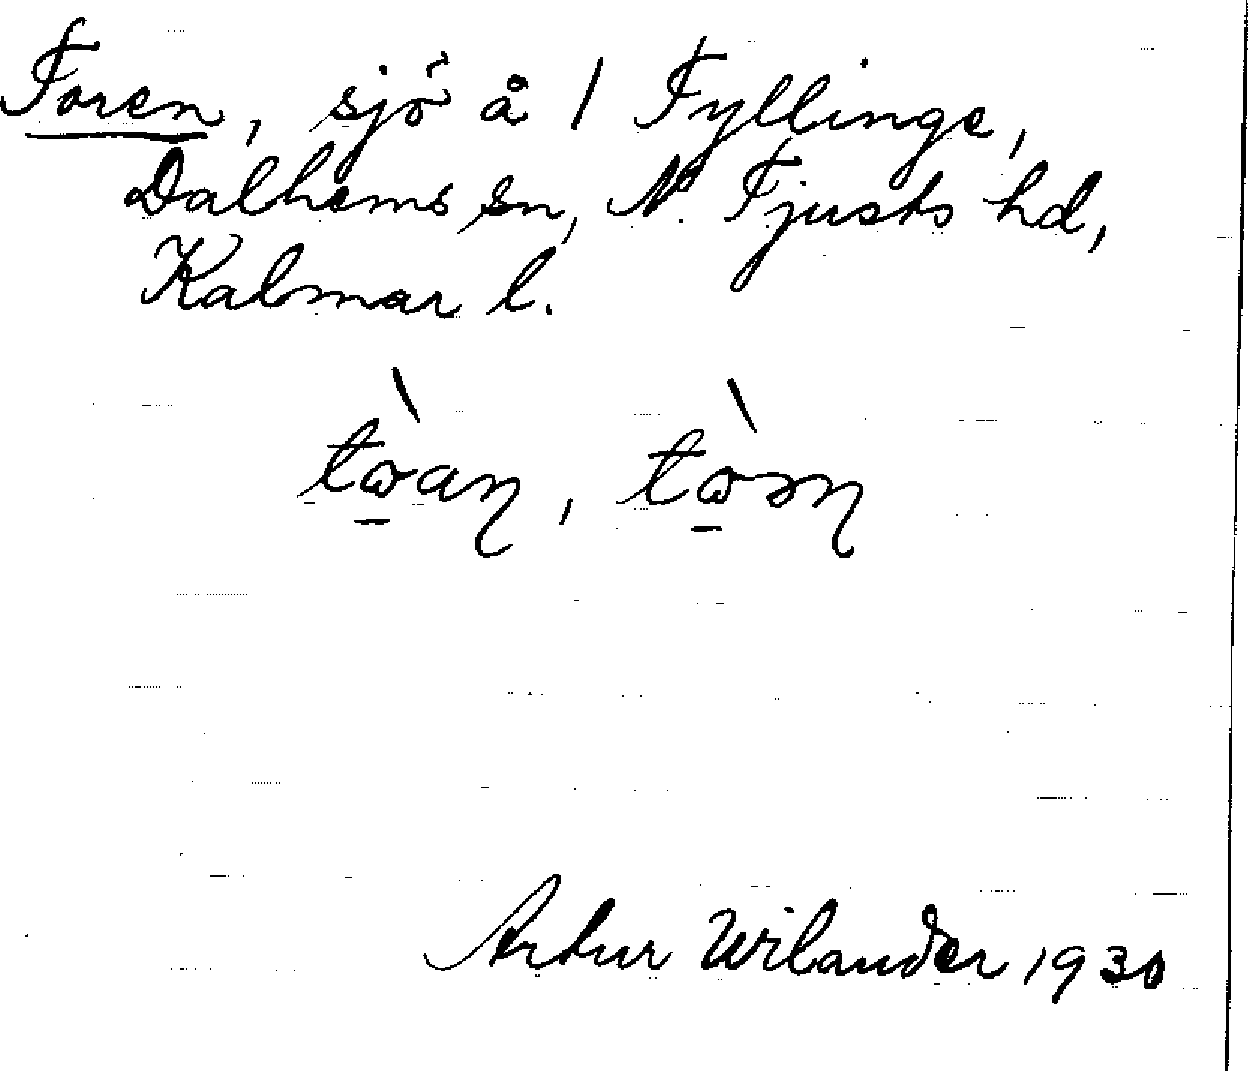 Toren, sjö å 1 Tyllinge,
Dalhems sn, N. Tjusts hd,
Kalmar l.
tὼ̱aɳ, tὼ̱əɳ
Artur Wilander 1930